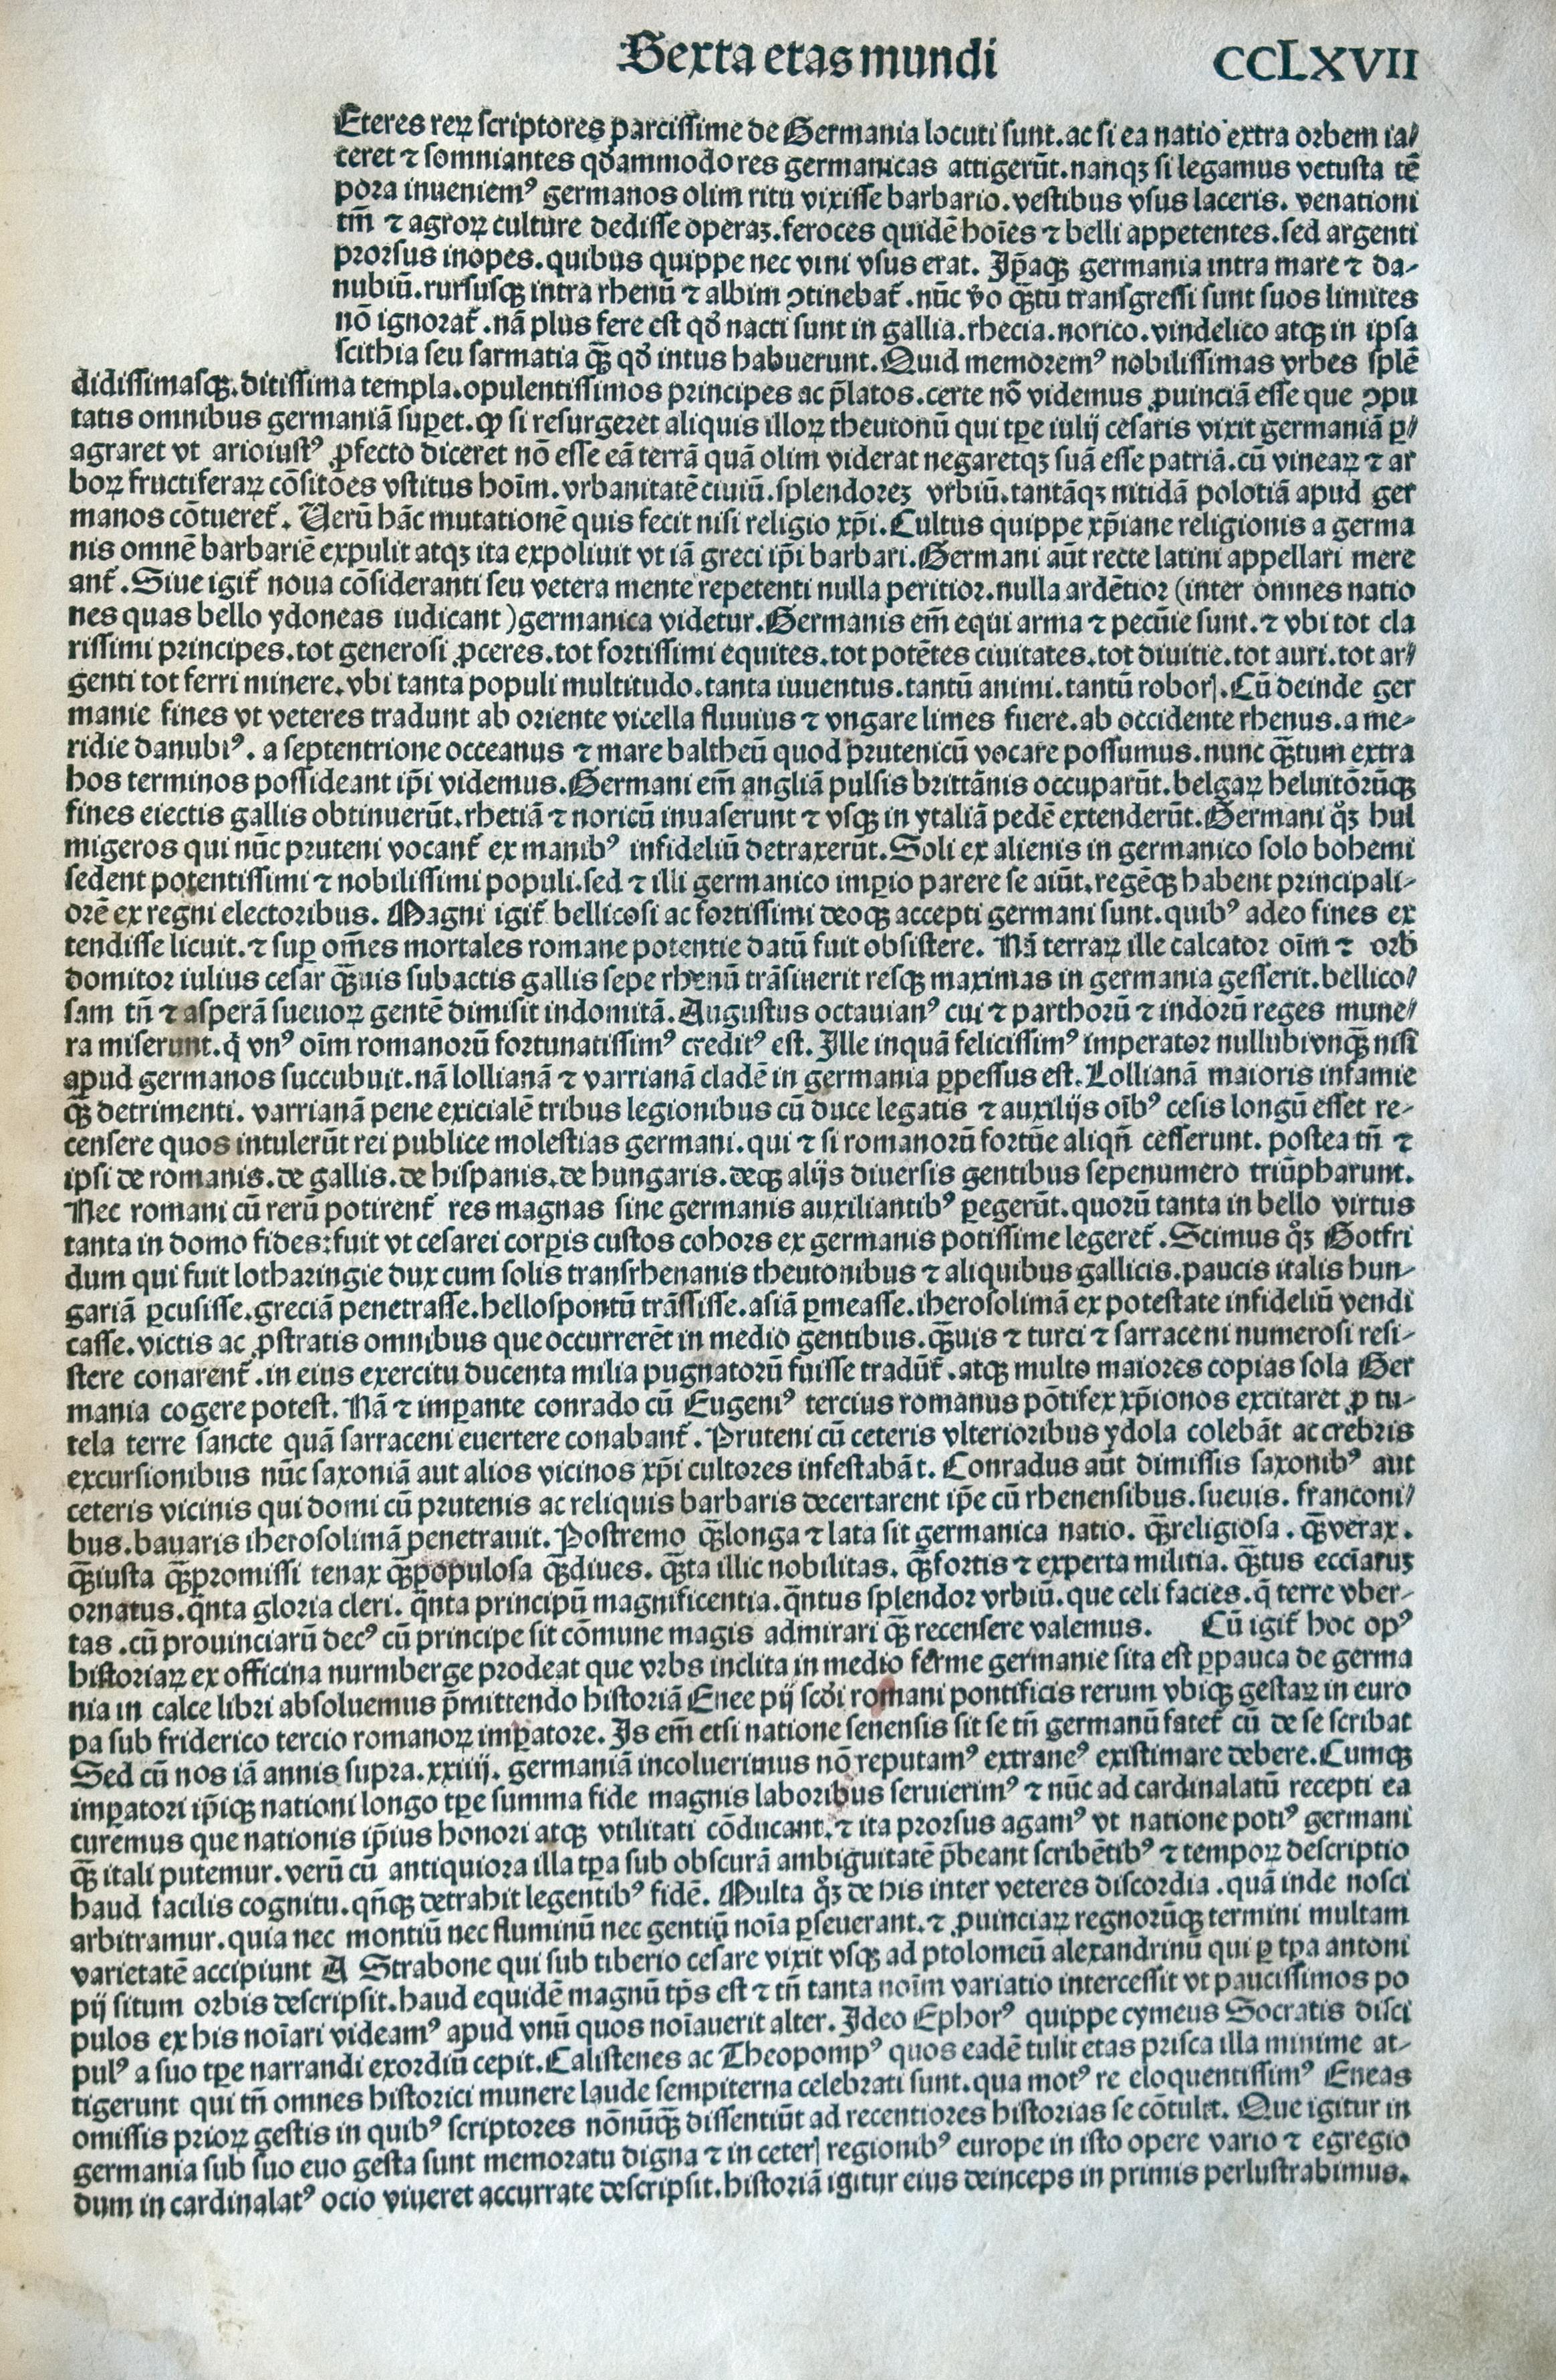 Sexta etas mundi CCLXVII
Eteres reꝝ scriptores parcissime de Germania locuti sunt. ac si ea natio extra orbem ia/
ceret ⁊ somniantes qd̄ammodo res germanicas attigerūt. nanqꝫ si legamus vetusta tē
pora inueniemꝰ germanos olim ritu vixisse barbario. vestibus vsus laceris. venationi
tm̄ ⁊ agroꝝ culture dedisse operaꝫ. feroces quidē hoīes ⁊ belli appetentes. sed argenti
prorsus inopes. quibus quippe nec vini vsus erat. Ip̄aqꝫ germania intra mare ⁊ da-
nubiū. rursusqꝫ intra rhenū ⁊ albim ↄtinebat᷑. nūc v̄o qꝫ̄tū transgressi sunt suos limites
nō ignorat᷑. nā plus fere est qd̄ nacti sunt in gallia. rhecia. norico. vindelico atqꝫ in ipsa
scithia seu sarmatia qꝫ̄ qd̄ intus habuerunt. Quid memoremꝰ nobilissimas vrbes splē
didissimasqꝫ. ditissima templa. opulentissimos principes ac p̄latos. certe nō videmus ꝓuinciā esse que ↄpu
tatis omnibus germaniā suꝑet. ꝙ si resurgeret aliquis illoꝝ theutonū qui tꝑe iulij cesaris vixit germaniā ꝑ/
agraret vt arioiustꝰ ꝓfecto diceret nō esse eā terrā quā olim viderat negaretqꝫ suā esse patriā. cū vineaꝝ ⁊ ar
boꝝ fructiferaꝝ cōsitōes vstitus hoīm. vrbanitatē ciuiū. splendoreꝫ vrbiū. tantāqꝫ nitidā polotiā apud ger
manos cōtueret᷑. Verū hāc mutationē quis fecit nisi religio xp̄i. Cultus quippe xp̄iane religionis a germa
nis omnē barbariē expulit atqꝫ ita expoliuit vt iā greci ip̄i barbari. Germani aūt recte latini appellari mere
ant᷑. Siue igit᷑ noua cōsideranti seu vetera mente repetenti nulla peritior. nulla ardētior (inter omnes natio
nes quas bello ydoneas iudicant) germanica videtur. Germanis em̄ equi arma ⁊ pecūie sunt. ⁊ vbi tot cla
rissimi principes. tot generosi ꝓceres. tot fortissimi equites. tot potētes ciuitates. tot diuitie. tot auri. tot ar/
genti tot ferri minere. vbi tanta populi multitudo. tanta iuuentus. tantū animi. tantū roborꝭ. Cū deinde ger
manie fines vt veteres tradunt ab oriente vicella fluuius ⁊ vngare limes fuere. ab occidente rhenus. a me-
ridie danubiꝰ. a septentrione occeanus ⁊ mare baltheū quod prutenicū vocare possumus. nunc qꝫ̄tum extra
hos terminos possideant ip̄i videmus. Germani em̄ angliā pulsis brittānis occuparūt. belgaꝝ heluitōrūqꝫ
fines eiectis gallis obtinuerūt. rhetiā ⁊ noricū inuaserunt ⁊ vsqꝫ in ytaliā pedē extenderūt. Germani qͦꝫ hul
migeros qui nūc pruteni vocant᷑ ex manibꝰ infideliū detraxerūt. Soli ex alienis in germanico solo bohemi
sedent potentissimi ⁊ nobilissimi populi. sed ⁊ illi germanico imꝑio parere se aiūt. regēqꝫ habent principali-
orē ex regni electoribus. Magni igit᷑ bellicosi ac fortissimi deoqꝫ accepti germani sunt. quibꝰ adeo fines ex
tendisse licuit. ⁊ suꝑ om̄es mortales romane potentie datū fuit obsistere. Nā terraꝝ ille calcator oīm ⁊ orb
domitor iulius cesar qꝫ̄uis subactis gallis sepe rhenū trāsiuerit resqꝫ maximas in germania gesserit. bellico/
sam tn̄ ⁊ asperā sueuoꝝ gentē dimisit indomitā. Augustus octauianꝰ cui ⁊ parthorū ⁊ indorū reges mune/
ra miserunt. q̄ vnꝰ oīm romanorū fortunatissimꝰ creditꝰ est. Ille inquā felicissimꝰ imperator nullubi vnqꝫ̄ nisi
apud germanos succubuit. nā lollianā ⁊ varrianā cladē in germania ꝑpessus est. Lollianā maioris infamie
qꝫ̄ detrimenti. varrianā pene exicialē tribus legionibus cū duce legatis ⁊ auxilijs oībꝰ cesis longū esset re-
censere quos intulerūt rei publice molestias germani. qui ⁊ si romanorū fortūe aliqn̄ cesserunt. postea tn̄ ⁊
ipsi de romanis. de gallis. de hispanis. de hungaris. deqꝫ alijs diuersis gentibus sepenumero triūpharunt.
Nec romani cū rerū potirent᷑ res magnas sine germanis auxiliantibꝰ ꝑegerūt. quorū tanta in bello virtus
tanta in domo fides: fuit vt cesarei corꝑis custos cohors ex germanis potissime legeret᷑. Scimus qͦꝫ Gotfri
dum qui fuit lotharingie dux cum solis transrhenanis theutonibus ⁊ aliquibus gallicis. paucis italis hun-
gariā ꝑcusisse. greciā penetrasse. hellospontū trāssisse. asiā ꝑmeasse. iherosolimā ex potestate infideliū vendi
casse. victis ac ꝓstratis omnibus que occurrerēt in medio gentibus. qꝫ̄uis ⁊ turci ⁊ sarraceni numerosi resi-
stere conarent᷑. in eius exercitu ducenta milia pugnatorū fuisse tradūt᷑. atqꝫ multo maiores copias sola Ger
mania cogere potest. Nā ⁊ imꝑante conrado cū Eugeniꝰ tercius romanus pōtifex xp̄ionos excitaret ꝓ tu-
tela terre sancte quā sarraceni euertere conabant᷑. Pruteni cū ceteris vlterioribus ydola colebāt ac crebris
excursionibus nūc saxoniā aut alios vicinos xp̄i cultores infestabāt. Conradus aūt dimissis saxonibꝰ aut
ceteris vicinis qui domi cū prutenis ac reliquis barbaris decertarent ip̄e cū rhenensibus. sueuis. franconi/
bus. bauaris iherosolimā penetrauit. Postremo qꝫ̄ longa ⁊ lata sit germanica natio. qꝫ̄ religiosa. qꝫ̄ verax.
qꝫ̄ iusta qꝫ̄ promissi tenax qꝫ̄ populosa qꝫ̄ diues. qꝫ̄ta illic nobilitas. qꝫ̄ fortis ⁊ experta militia. qꝫ̄tus ecciaruꝫ
ornatus. qn̄ta gloria cleri. qn̄ta principū magnificentia. qn̄tus splendor vrbiū. que celi facies. q̄ terre vber-
tas. cū prouinciarū decꝰ cū principe sit cōmune magis admirari qꝫ̄ recensere valemus. Cū igit᷑ hoc opꝰ
historiaꝝ ex officina nurmberge prodeat que vrbs inclita in medio ferme germanie sita est ꝑpauca de germa
nia in calce libri absoluemus p̄mittendo historiā Enee pij scd̄i romani pontificis rerum vbiqꝫ gestaꝝ in euro
pa sub friderico tercio romanoꝝ imꝑatore. Is em̄ etsi natione senensis sit se tn̄ germanū fatet᷑ cū de se scribat
Sed cū nos iā annis supra. xxiiij. germaniā incoluerimus nō reputamꝰ extraneꝰ existimare debere. Cumqꝫ
imꝑatori ip̄iqꝫ nationi longo tꝑe summa fide magnis laboribus seruierimꝰ ⁊ nūc ad cardinalatū recepti ea
curemus que nationis ip̄ius honori atqꝫ vtilitati cōducant. ⁊ ita prorsus agamꝰ vt natione potiꝰ germani
qꝫ̄ itali putemur. verū cū antiquiora illa tꝑa sub obscurā ambiguitatē p̄beant scribētibꝰ ⁊ tempoꝝ descriptio
haud facilis cognitu. qn̄qꝫ detrahit legentibꝰ fidē. Multa qͦꝫ de his inter veteres discordia. quā inde nosci
arbitramur. quia nec montiū nec fluminū nec gentiū noīa ꝑseuerant. ⁊ ꝓuinciaꝝ regnorūqꝫ termini multam
varietatē accipiunt A Strabone qui sub tiberio cesare vixit vsqꝫ ad ptolomeū alexandrinū qui ꝑ tꝑa antoni
pij situm orbis descripsit. haud equidē magnū tp̄s est ⁊ tn̄ tanta noīm variatio intercessit vt paucissimos po
pulos ex his noīari videamꝰ apud vnū quos noīauerit alter. Ideo Ephorꝰ quippe cymeus Socratis disci
pulꝰ a suo tꝑe narrandi exordiū cepit. Calistenes ac Theopompꝰ quos eadē tulit etas prisca illa minime at-
tigerunt qui tn̄ omnes historici munere laude sempiterna celebrati sunt. qua motꝰ re eloquentissimꝰ Eneas
omissis prioꝝ gestis in quibꝰ scriptores nōnūqꝫ̄ dissentiūt ad recentiores historias se cōtulit. Que igitur in
germania sub suo euo gesta sunt memoratu digna ⁊ in ceterꝭ regionibꝰ europe in isto opere vario ⁊ egregio
dum in cardinalatꝰ ocio viueret accurrate descripsit. historiā igitur eius deinceps in primis perlustrabimus.